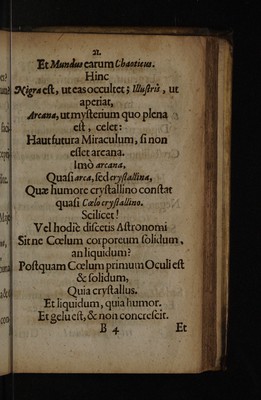 21.
Et Mundus earum Chanticus.
Hinc
Nigra est, ut eas occultet; Illustris, ut
aperiat,
Arcana, ut mysterium quo plena
est, celet:
Haut futura Miraculum, si non
esset arcana.
Imò arcana,
Quasi arca, sed crystallina,
Quæ humore crystallino constat
quasi Cœlo crystallino.
Scilicet!
Vel hodie discetis Astronomi
Sit ne Cœlum corporeum solidum,
an liquidum?
Postquam Cœlum primum Oculi est
& solidum,
Quia crystallus.
Et liquidum, quia humor.
Et gelu est, & non concrescit.
B 4 Et